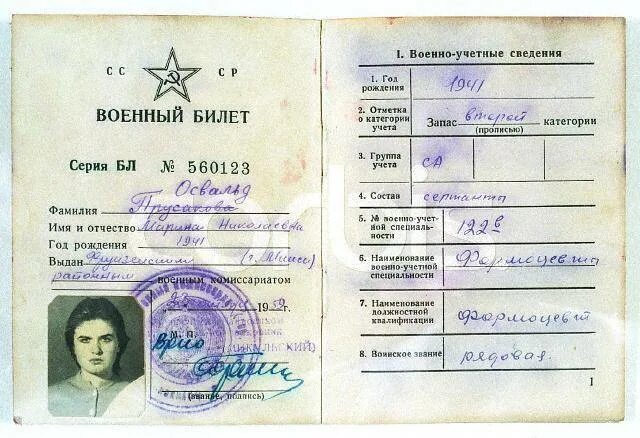 СС СР
ВОЕННЫЙ БИЛЕТ
Серия БЛ № 560123
Освальд
Фамилия Прусакова
Имя и отчество Марина Николаевна
Год рождения 1941
Выдан Фрунзенским (г. Минск)
районным военным комиссариатом
1959 г.
М. П.
Врио
(НИКОЛЬСКИЙ)
(звание, подпись)
I. Военно-учетные сведения
1. Год рождения 1941
2. Отметка о категории учета Запас второй категории
(прописью)
3. Группа учета СА
4. Состав сержанты
5. № военно-учетной специальности 122
6. Наименование военно-учетной специальности Формацевты
7. Наименование должностной квалификации Формоцевт
8. Воинское звание рядовая.
1